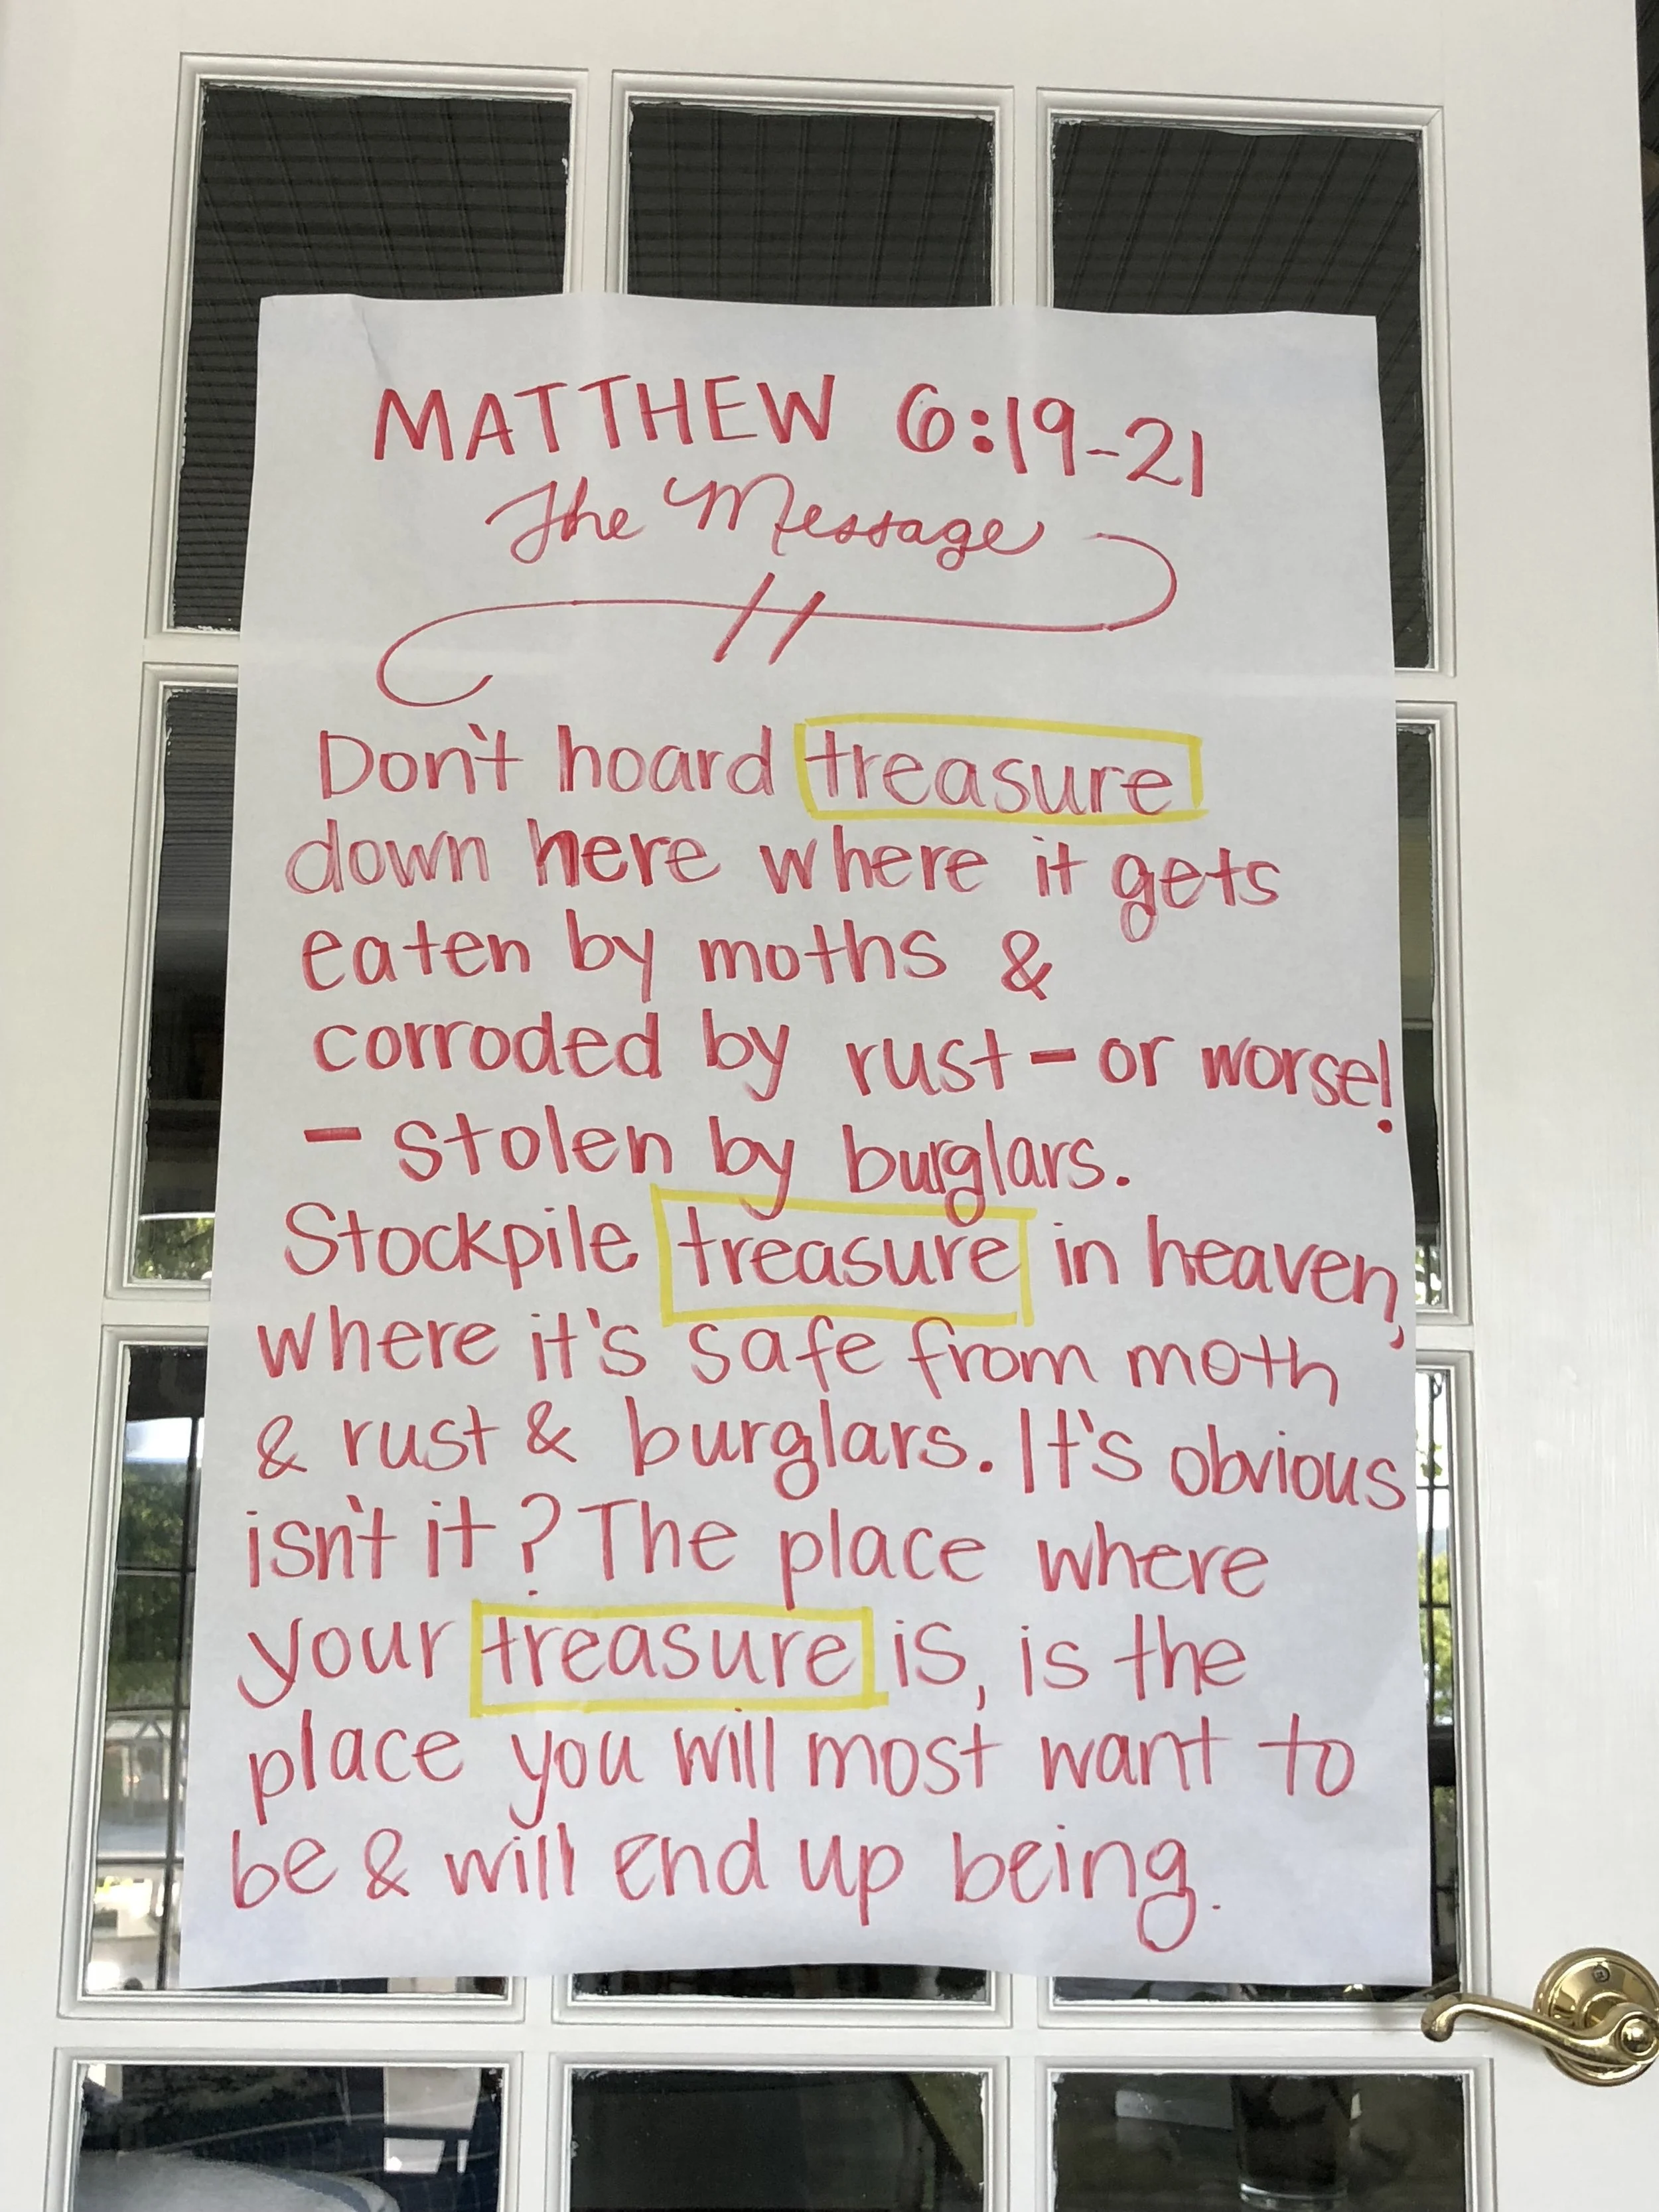 MATTHEW 6:19-21
The Message
Don't hoard treasure
down here where it gets
eaten by moths &
corroded by rust - or worse!
- stolen by burglars.
Stockpile treasure in heaven,
where it's safe from moth
& rust & burglars. It's obvious
isn't it? The place where
your treasure is, is the
place you will most want to
be & will end up being.